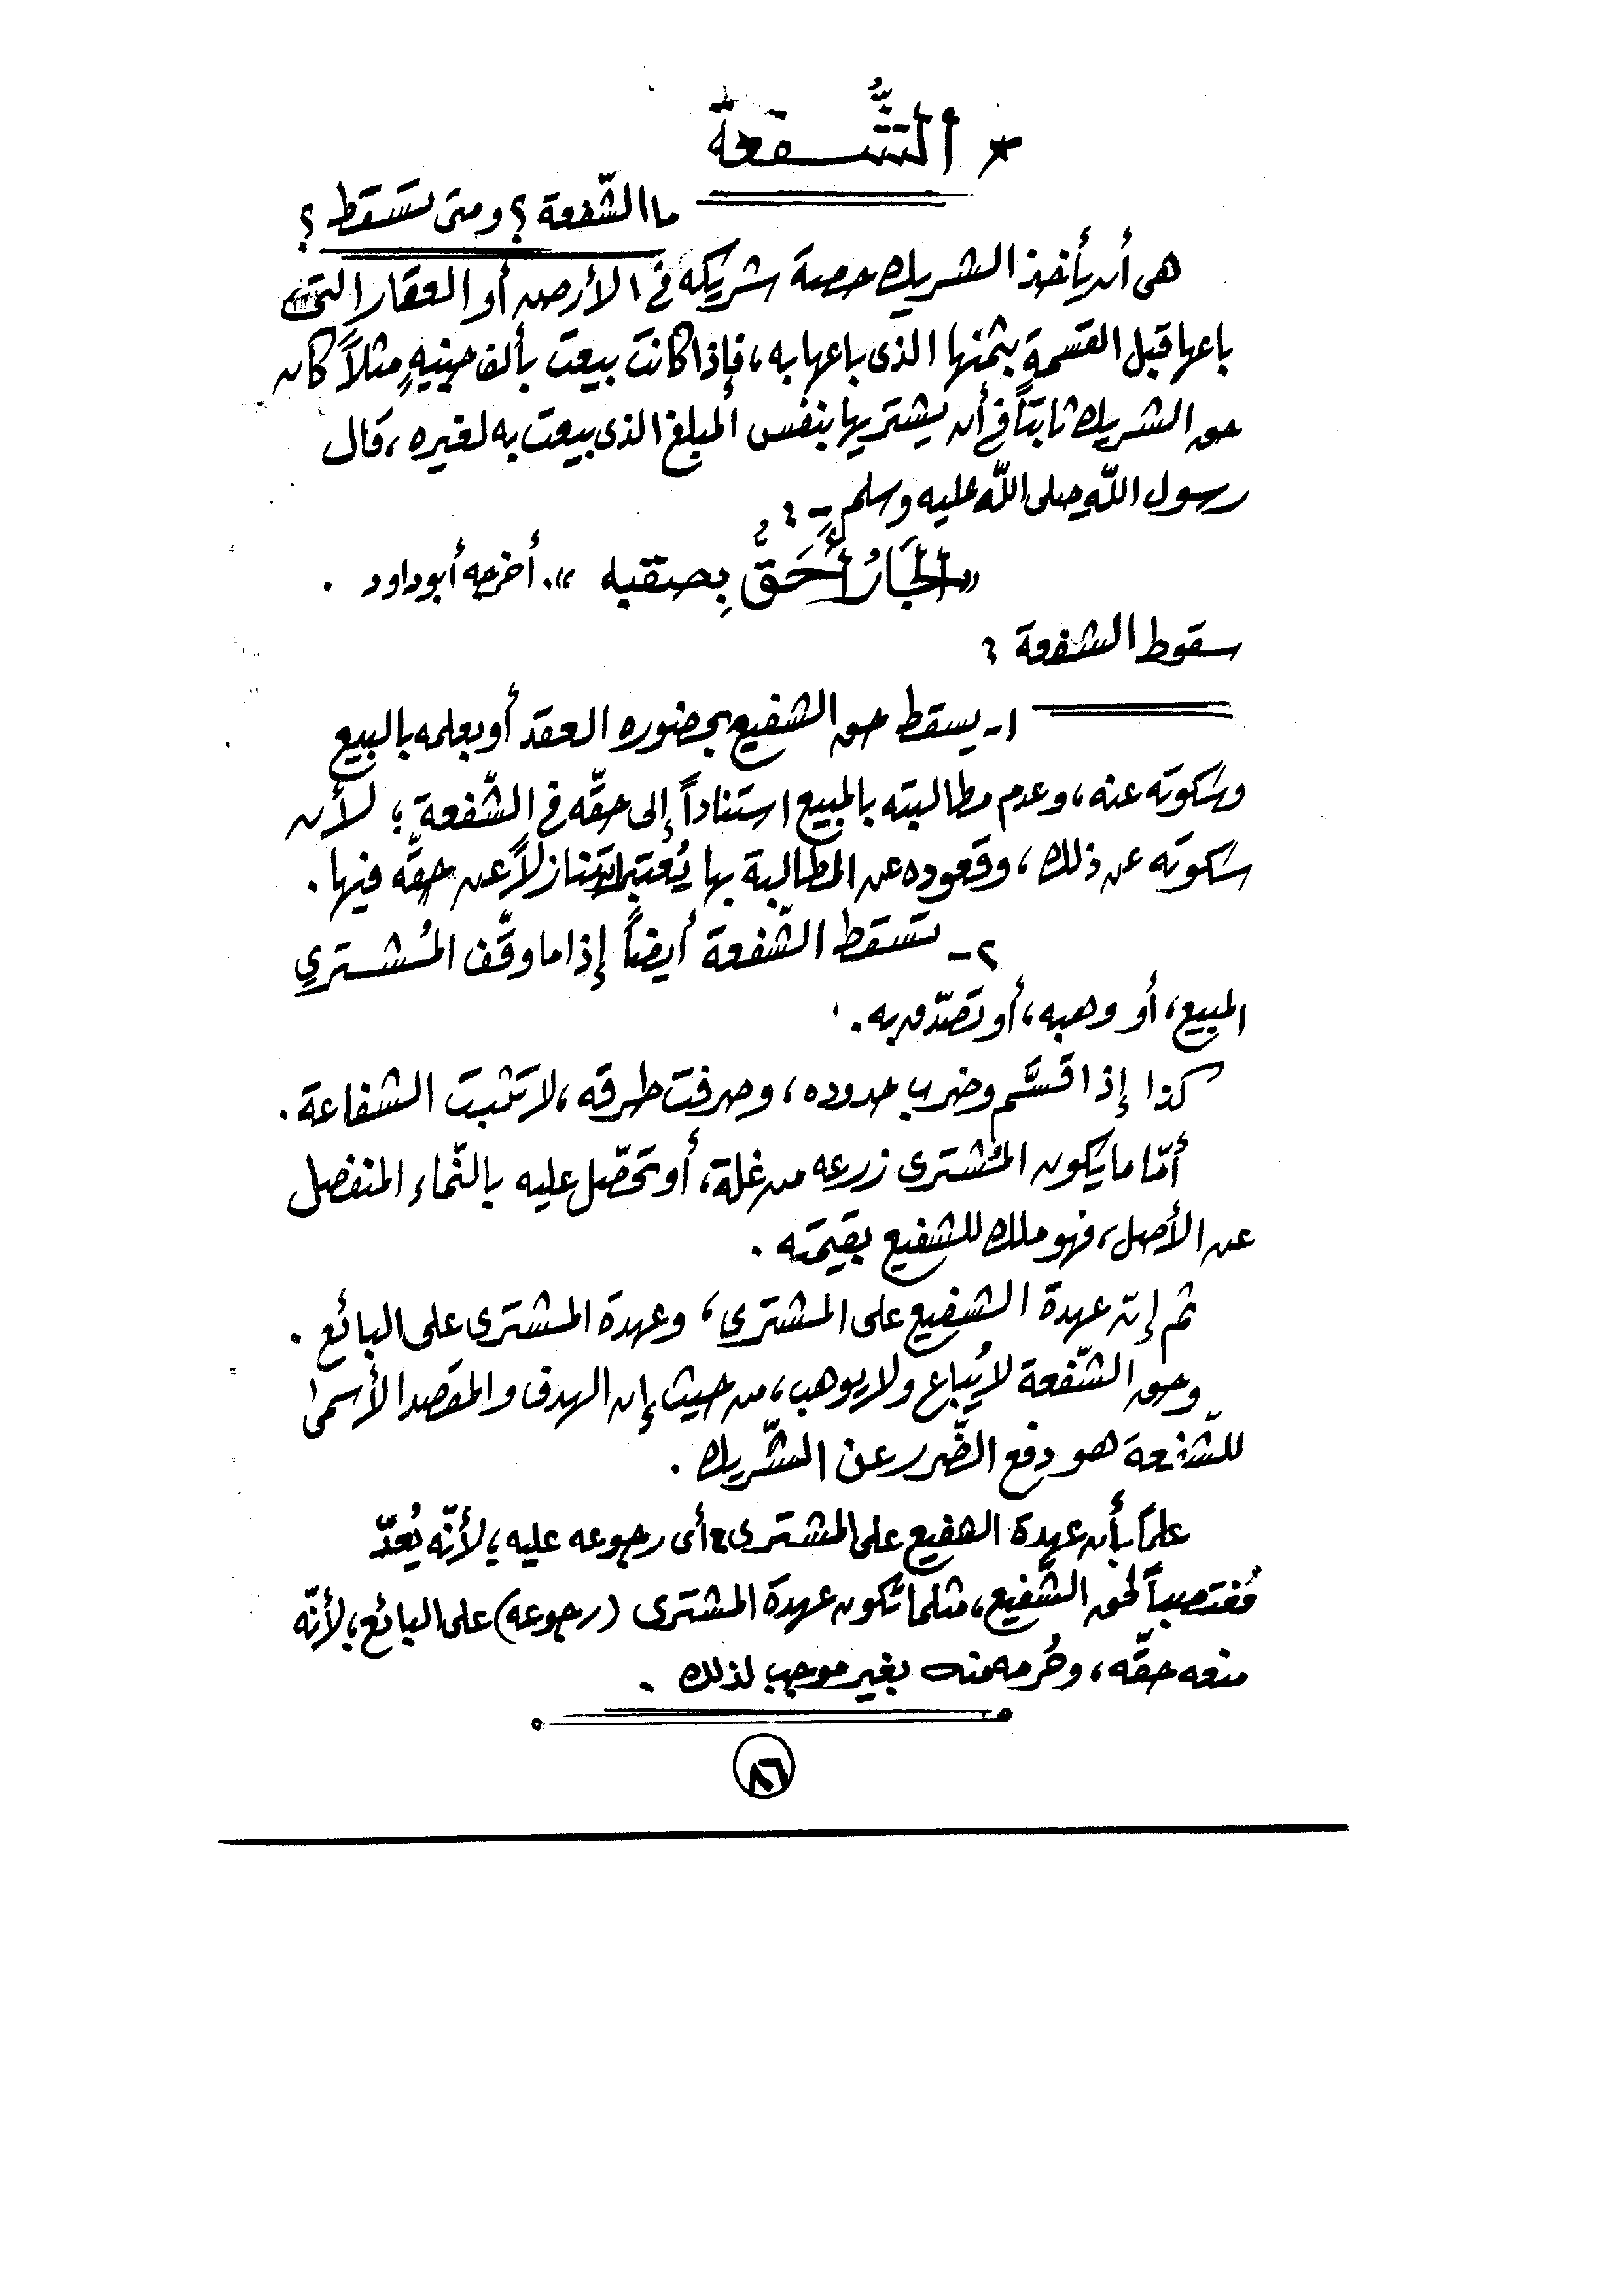 * الشُّفعة
ما الشّفعة؟ ومتى تسقط؟
هى أن يأخذ الشريك حصة شريكه فى الأرض أو العقار التى
باعها قبل القسمة بثمنها الذى باعها به، فإذا كانت بيعت بألف جنيهٍ مثلاً كان
حق الشريك ثابتاً فى أن يشتريها بنفس المبلغ الذى بيعت به لغيره، قال
رسول اللّه صلى اللّه عليه وسلم -:
«الجَارُ أَحَقُّ بِصقبه». أخرجه أبوداود .
سقوط الشفعة :
١- يسقط حق الشفيع بحضوره العقد أو بعلمه بالبيع
وسكوته عنه، وعدم مطالبته بالمبيع استناداً إلى حقّه فى الشّفعة؛ لأن
سكوته عن ذلك، وقعوده عن المطالبة بها يُعتبر تنازلاً عن حقّه فيها.
٢- تسقط الشّفعة أيضاً إذا ما وقّف المُشترى
المبيع، أو وهبه، أو تصدّق به.
كذا إذا قسَّم وضرب حدوده، وصرفت طرقه، لا تثبت الشفاعة.
أمّا ما يكون المُشترى زرعه من غلة، أو تحصّل عليه بالنّماء المنفصل
عن الأصل، فهو ملك للشفيع بقيمته.
ثم إنّ عهدة الشفيع على المشترى، وعهدة المشترى على البائع.
وحق الشّفعة لا يُباع ولا يوهب، من حيث إن الهدف والمقصد الأسمى
للشّفعة هو دفع الضّرر عن الشّريك.
علماً بأن عهدة الشفيع على المشترى أى رجوعه عليه؛ لأنّه يُعدّ
مُغتصباً لحق الشّفيع، مثلما تكون عهدة المشترى (رجوعه) على البائع؛ لأنّه
منعه حقّه، وحُرمه منه بغير موجب لذلك.
٨٦